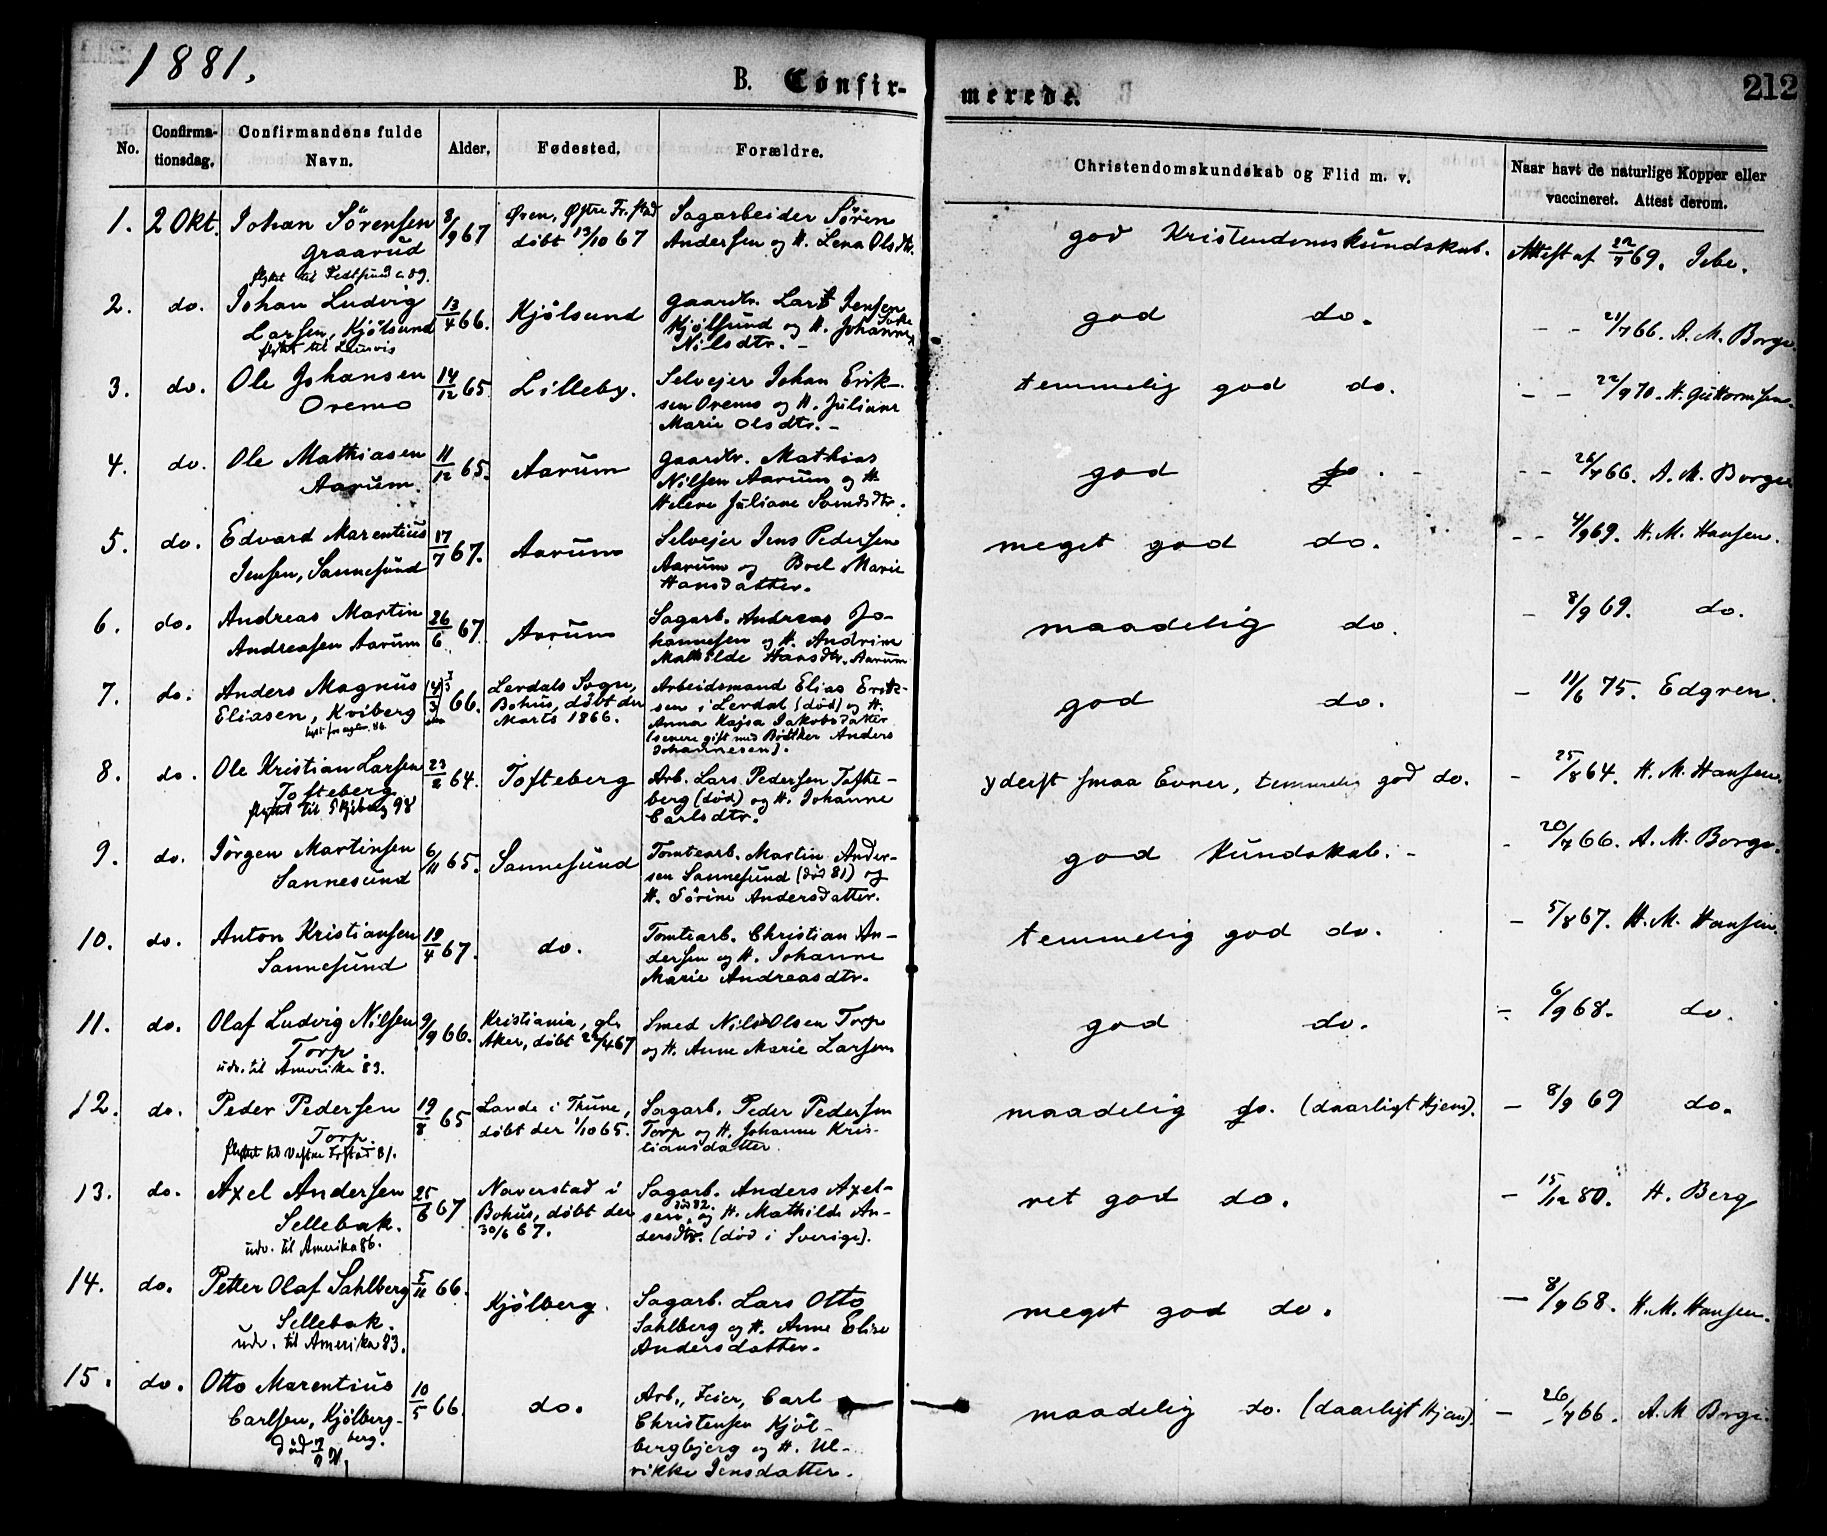 1881.
B. Confir-
merede.
212
No.
Confirma-
tionsdag.
Confirmandens fulde
Navn.
Alder.
Fødested.
Forældre.
Christendomskundskab og Flid m. v.
Naar havt de naturlige Kopper eller
vaccineret. Attest derom.
1. 2 Okt. Johan Sørensen 8/9 67 Øren, Østre Fr.stad Sagarbeider Søren
Graarud døbt 13/10 67 Andersen og H. Lena Olsdtr.
god Kristendomskundskab. Attest af 22/7 69. Jebe.
2. do. Johan Ludvig 13/4 66. Kjølsund Gaardbr. Lars Jensen
Larsen, Kjølsund Kjølsund og H. Johanne
flyttet til Nilsdtr. -
god do. - - 21/7 66. A. M. Borge.
3. do. Ole Johansen 14/12 65. Lilleby. Selvejer Johan Erik-
Oremo sen Oremo og H. Juliane
Marie Olsdtr. -
temmelig god do. - - 22/9 70. H. Guttormsen.
4. do. Ole Mathiasen 11/12 65. Aarum Gaardbr. Mathias
Aarum. Nilsen Aarum og H.
Helene Juliane Svendsdtr.
god do. - - - 26/7 66. A. M. Borge
5. do. Edvard Marentius 17/7 67. Aarum Selvejer Jens Pedersen
Jensen, Sannesund Aarum og Boel Marie
Hansdatter.
meget god do. - - 4/9 69. H. M. Hansen.
6. do. Andreas Martin 26/6 67. Aarum Sagarb. Andreas Jo-
Andreasen Aarum hannesen og H. Andrine
Mathilde Hansdtr. Aarum
maadelig do. - 8/9 69. do.
7. do. Anders Magnus 66. Lerdals Sogn, Arbeidsmand Elias Erik-
Eliasen, Kviberg Bohus, døbt den sen i Lerdal (død) og H.
Marts 1866. Anna Kajsa Jakobsdatter
(senere gift med Bødker Anders
Johannesen).
god do. - 11/6 75. Edgren.
8. do. Ole Kristian Larsen 23/2 64. Tofteberg Arb. Lars Pedersen Tofte-
Tofteberg berg (død) og H. Johanne
flyttet til Skjeberg 98 Carlsdtr.
yderst smaa Evner, temmelig god do. - 25/8 64. H. M. Hansen.
9. do. Jørgen Martinsen 6/11 65. Sannesund Tomtearb. Martin Ander-
Sannesund sen Sannesund (død 81) og
H. Sørine Andersdatter.
god Kundskab. - - 20/7 66. A. M. Borge.
10. do. Anton Kristiansen 19/4 67. do. Tomtearb. Christian An-
Sannesund dersen og H. Johanne
Marie Andreasdtr.
temmelig god do. - 5/8 67. H. M. Hansen.
11. do. Olaf Ludvig Nilsen 9/9 66. Kristiania, gl. Smed Nils Olsen Torp
Torp. Aker, døbt 22/4 67 og H. Anne Marie Larsen
udv. til Amerika 83.
god do. - 6/9 68. do.
12. do. Peder Pedersen 19/8 65 Lande i Thune, Sagarb. Peder Pedersen
Torp. døbt den 1/10 65. Torp og H. Johanne Kris-
flyttet til Vestre Frstad 81. tiansdatter.
maadelig do. (daarligt Hjem). - 8/9 69 do.
13. do. Axel Andersen 25/6 67 Naverstad i Sagarb. Anders Axel-
død 82.
Sellebak. Bohus, døbt den sen, og H. Mathilde An-
udv. til Amerika 86. 30/6 67. dersdtr. (død i Sverige).
ret god do. - 15/12 80. H. Berg
14. do. Petter Olaf Sahlberg 5/11 66. Kjølberg. Sagarb. Lars Otto
Sellebak. Sahlberg og H. Anne Elise
udv. til Amerika 83. Andersdatter.
meget god do. - 8/9 68. H. M. Hansen.
15. do. Otto Marentius 10/5 66. do. Arb., Feier, Carl
Carlsen, Kjølberg- Christensen Kjøl-
berg. bergbjerg og H. Ul-
død rikke Jensdatter.
maadelig do. (daarligt Hjem). - 26/7 66. A. M. Borge.